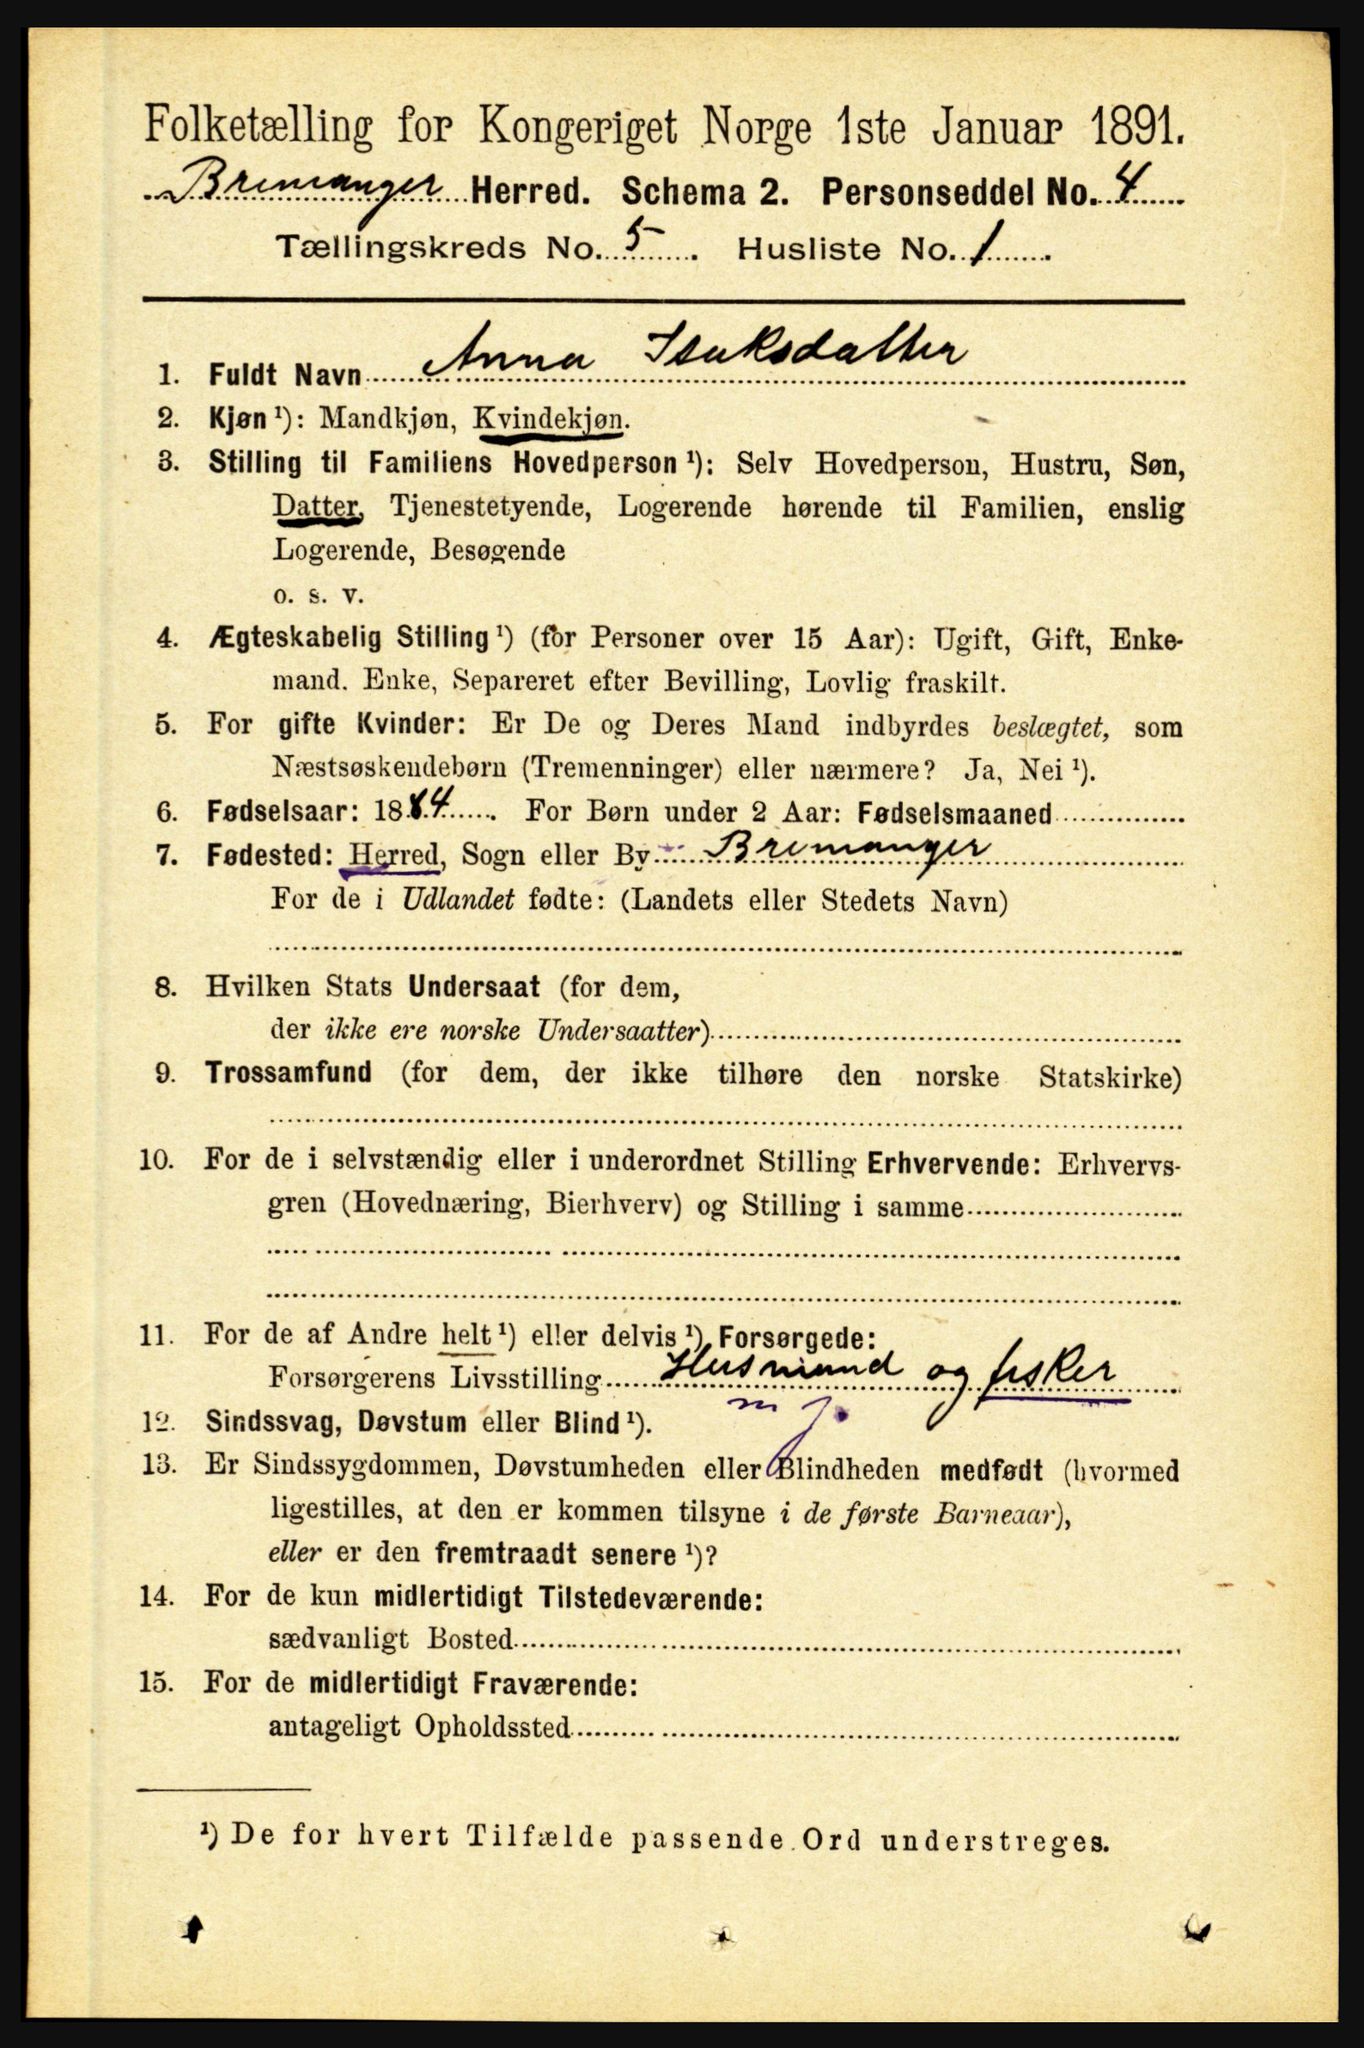 Folketælling for Kongeriget Norge 1ste Januar 1891.
Bremanger Herred. Schema 2. Personseddel No. 4
Tællingskreds No. 5. Husliste No. 1.
1. Fuldt Navn Anna Isaksdatter
2. Kjøn ¹): Mandkjøn, Kvindekjøn.
3. Stilling til Familiens Hovedperson ¹): Selv Hovedperson, Hustru, Søn,
Datter, Tjenestetyende, Logerende hørende til Familien, enslig
Logerende, Besøgende
o. s. v.
4. Ægteskabelig Stilling ¹) (for Personer over 15 Aar): Ugift, Gift, Enke-
mand. Enke, Separeret efter Bevilling, Lovlig fraskilt.
5. For gifte Kvinder: Er De og Deres Mand indbyrdes beslægtet, som
Næstsøskendebørn (Tremenninger) eller nærmere? Ja, Nei ¹).
6. Fødselsaar: 1884. For Børn under 2 Aar: Fødselsmaaned
7. Fødested: Herred, Sogn eller By Bremanger
For de i Udlandet fødte: (Landets eller Stedets Navn)
8. Hvilken Stats Undersaat (for dem,
der ikke ere norske Undersaatter)
9. Trossamfund (for dem, der ikke tilhøre den norske Statskirke)
10. For de i selvstændig eller i underordnet Stilling Erhvervende: Erhvervs-
gren (Hovednæring, Bierhverv) og Stilling i samme
11. For de af Andre helt ¹) eller delvis ¹) Forsørgede:
Forsørgerens Livsstilling Husmand og fisker
m j.
12. Sindssvag, Døvstum eller Blind ¹).
13. Er Sindssygdommen, Døvstumheden eller Blindheden medfødt (hvormed
ligestilles, at den er kommen tilsyne i de første Barneaar),
eller er den fremtraadt senere ¹)?
14. For de kun midlertidigt Tilstedeværende:
sædvanligt Bosted
15. For de midlertidigt Fraværende:
antageligt Opholdssted
¹) De for hvert Tilfælde passende Ord understreges.